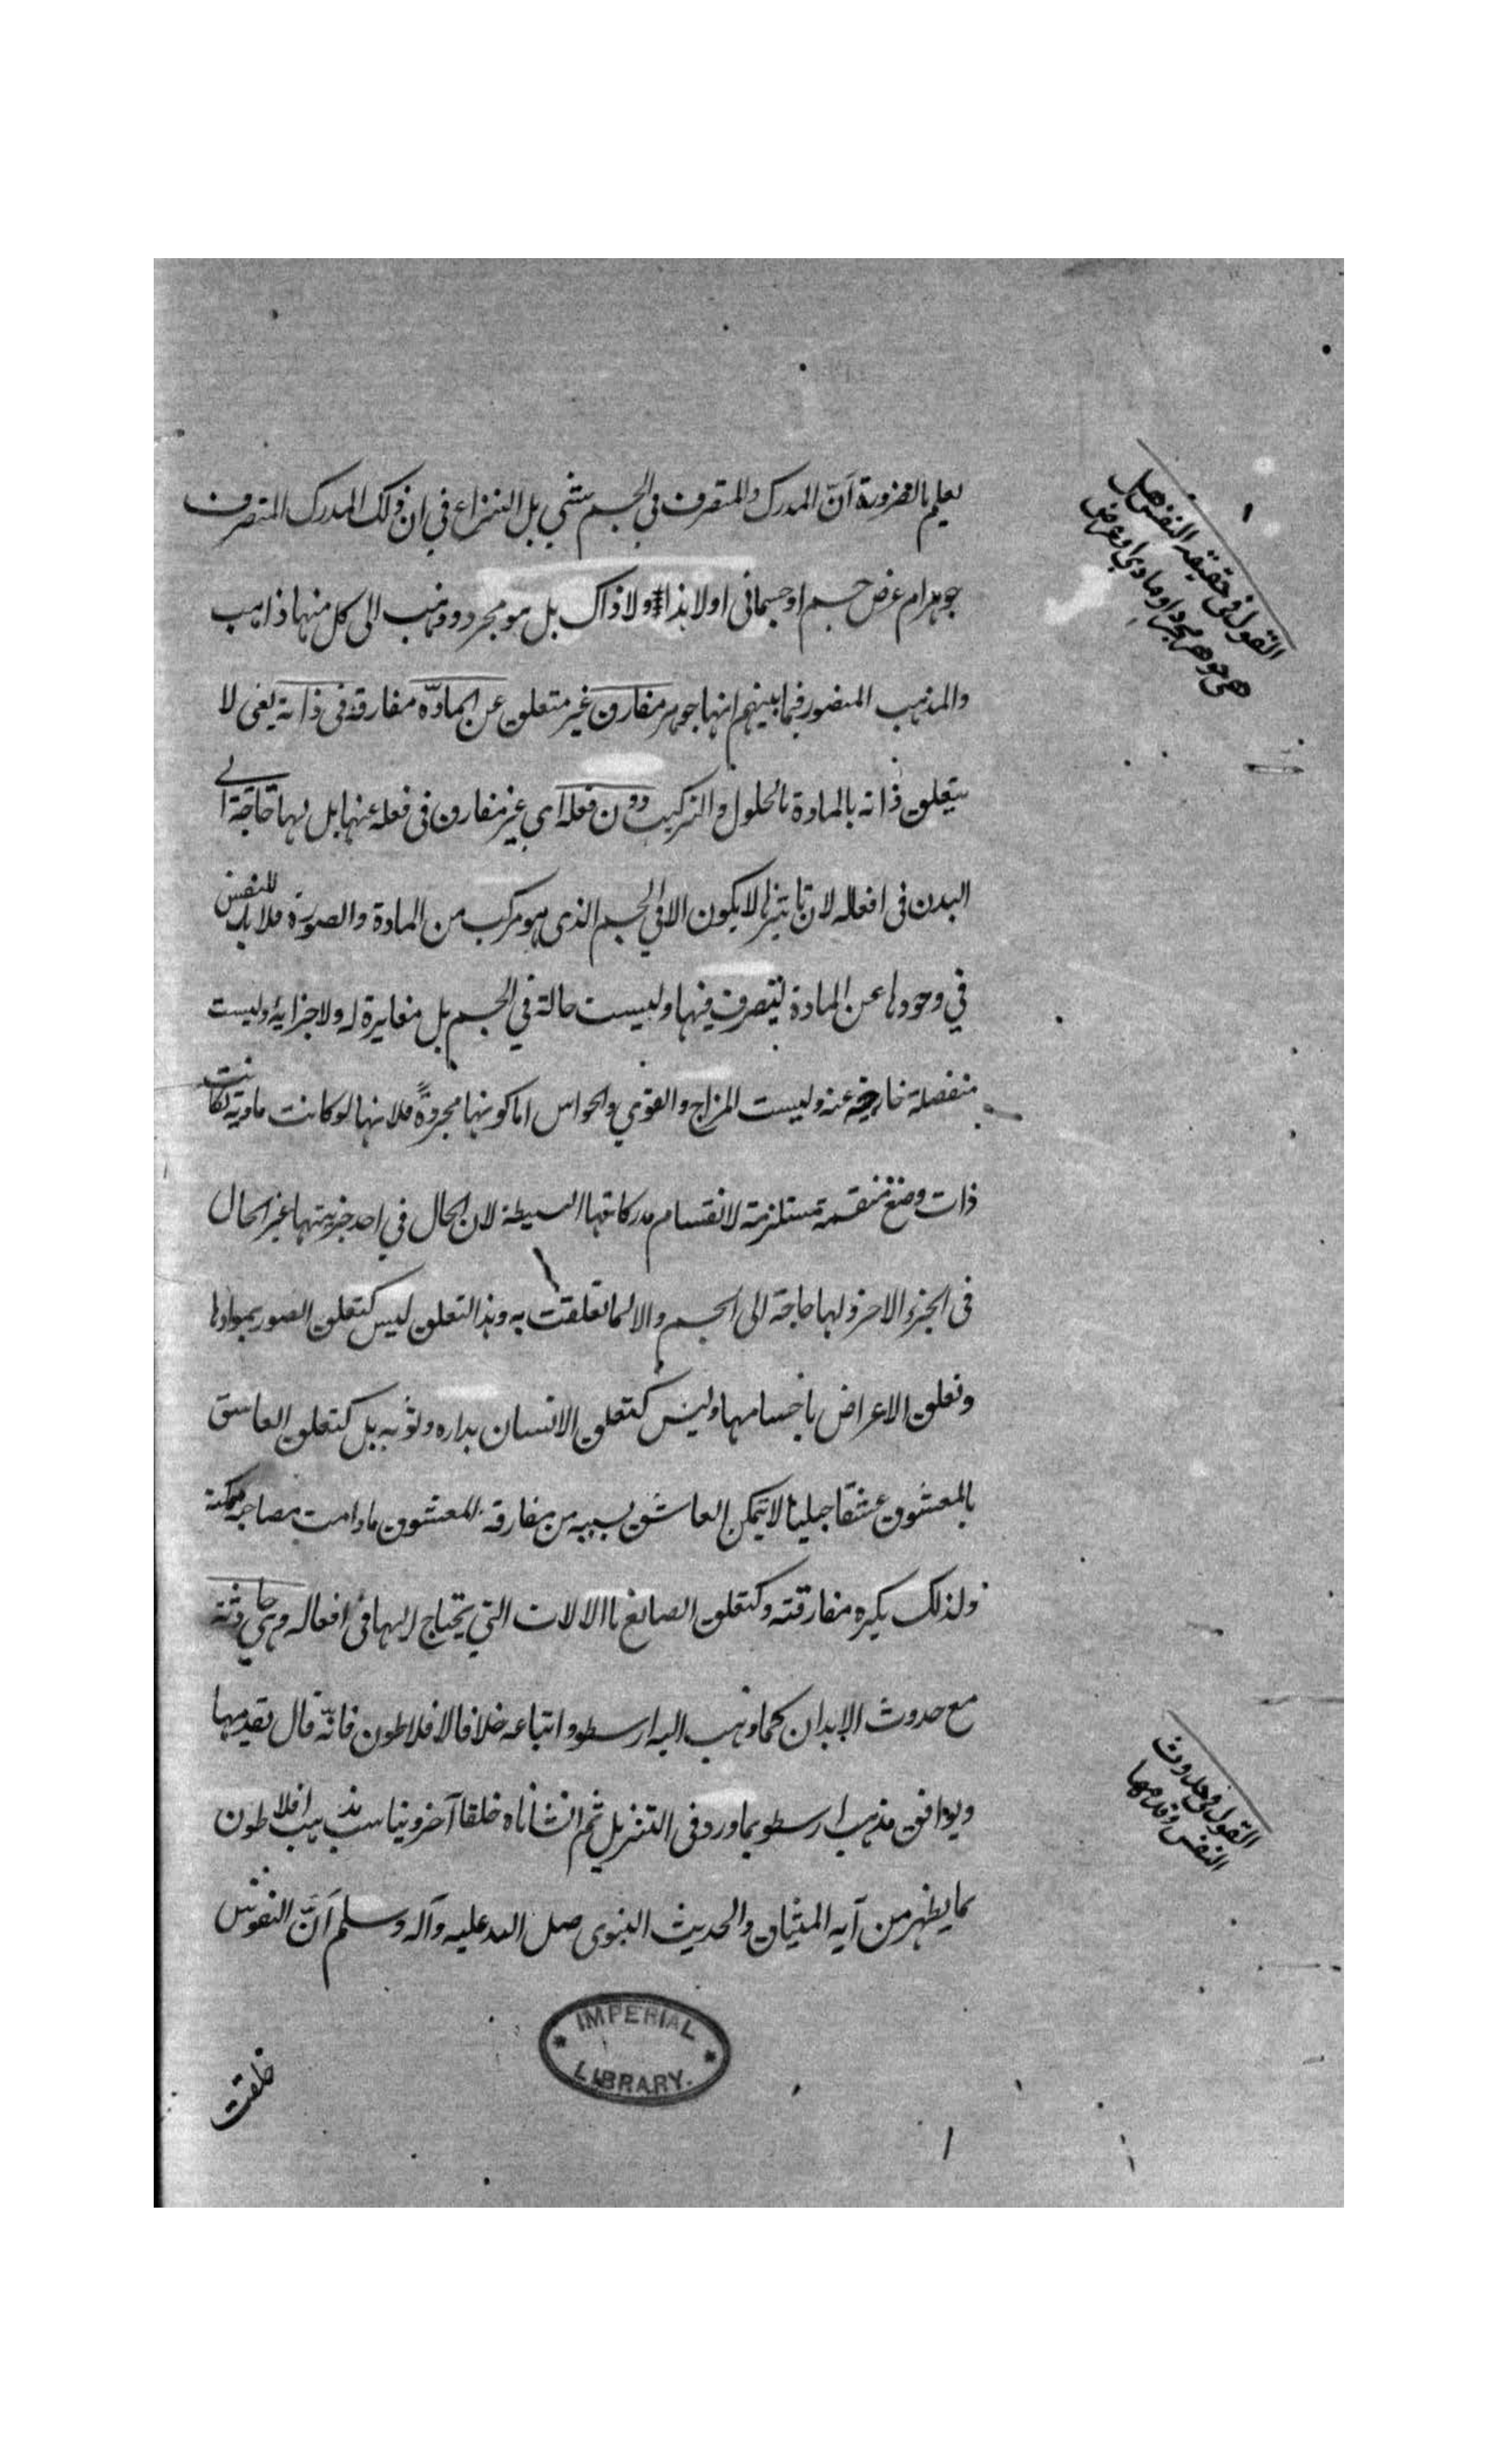 يعلم بالضرورة أنّ المدرك والمتصرف في الجسم شي بل النزاع في ان ذلك المدرك المتصرف
جوهر ام عرض جسم او جسماني او لا هذا ولا ذاك بل هو مجرد وذهب الى كل منها ذاهب
والمذهب المنصور فيما بينهم انها جوهر مفارق غير متعلق عن المادّة مفارقة في ذاته يعني لا
يتعلق ذاته بالمادة بالحلول والتركيب دون فعله اي غير مفارق في فعله عنها بل لها حاجة الى
البدن في افعاله لان تاثيرها لا يكون الا في الجسم الذي هو مركب من المادة والصورة فلا بد للنفس
في وجودها عن المادة ليتصرف فيها وليست حالة في الجسم بل مغايرة له ولا جزاية وليست
منفصلة خارجة عنه وليست المزاج والقوي والحواس اما كونها مجردةً فلانها لو كانت مادية لكانت
ذات وضع منقسمة مستلزمة لانقسام مدركاتها البسيطة لان الحال في احد جزيتها غير الحال
في الجزو الاخر ولها حاجة الى الجسم والا لما تعلقت به وهذا التعلق ليس كتعلق الصور بموادها
وتعلق الاعراض باجسامها وليس كتعلق الانسان بداره وثوبه بل كتعلق العاشق
بالمعشوق عشقا جبليا لا يتمكن العاشق بسببه من مفارقة المعشوق ما دامت مصاحبة ممكنة
ولذلك يكره مفارقته وكتعلق الصانع باالالات التي يحتاج اليها في افعاله وهي حادثة
مع حدوث الابدان كما ذهب اليه ارسطو واتباعه خلافا لافلاطون فانّه قال بقدمها
ويوافق مذهب ارسطو بما ورد في التنزيل ثم انشأناه خلقا آخر ويناسب مذهب افلاطون
بما يظهر من آيه الميثاق والحديث النبوى صلى الله عليه وآله وسلم أنّ النفوس
خلقت
القول في حقيقة النفس هل
هي جوهر مجرد او مادي او عرض
القول في حدوث
النفس وقدمها
IMPERIAL
LIBRARY.